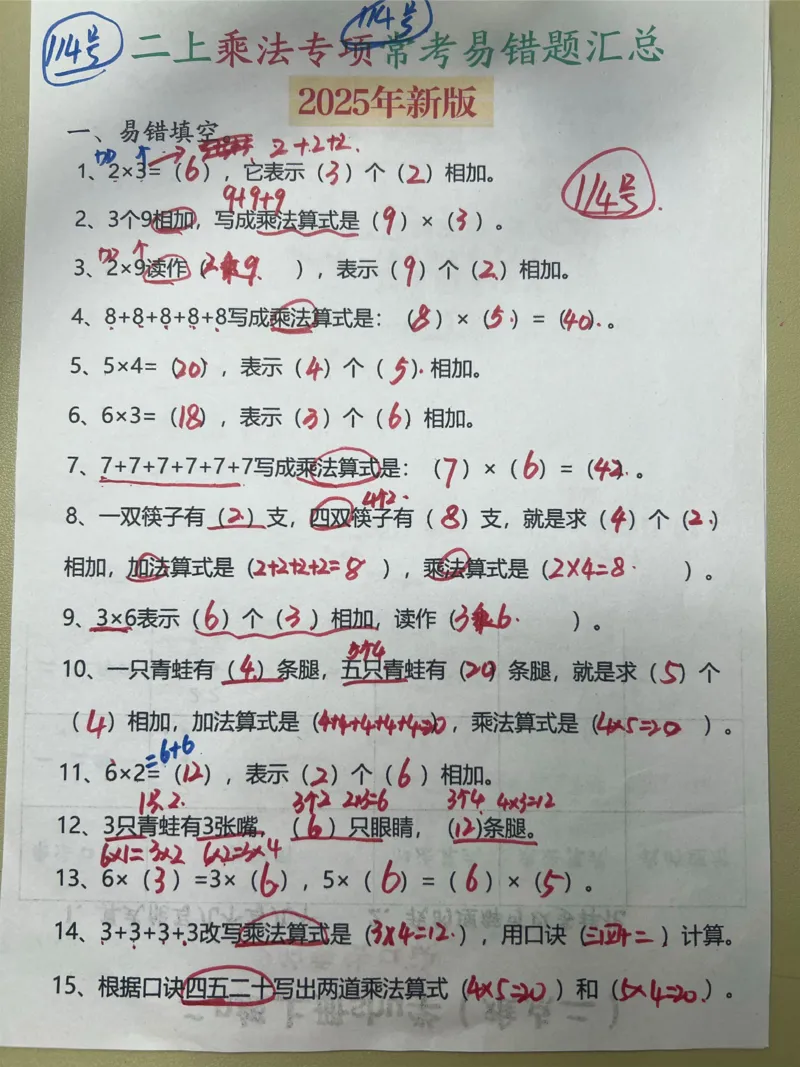 114号 二上乘法专项常考易错题汇总 114号
2025年新版
一、易错填空。 2+2+2.
加 个
1、2×3=（6），它表示（3）个（2）相加。
9+9+9
114号.
2、3个9相加，写成乘法算式是（9）×（3）。
加 个
3、2×9读作（2乘9 ），表示（9）个（2）相加。
4、8+8+8+8+8写成乘法算式是：（8）×（5）=（40）。
5、5×4=（20），表示（4）个（5）相加。
6、6×3=（18），表示（3）个（6）相加。
7、7+7+7+7+7+7写成乘法算式是：（7）×（6）=（42）。
4个2.
8、一双筷子有（2）支，四双筷子有（8）支，就是求（4）个（2）
相加，加法算式是（2+2+2+2=8 ），乘法算式是（2×4=8 ）。
9、3×6表示（6）个（3）相加，读作（3乘6. ）。
5个4
10、一只青蛙有（4）条腿，五只青蛙有（20）条腿，就是求（5）个
（4）相加，加法算式是（4+4+4+4+4=20），乘法算式是（4×5=20 ）。
=6+6
11、6×2=（12），表示（2）个（6）相加。
3个2 2×3=6 3个4 4×3=12
12、3只青蛙有3张嘴，（6）只眼睛，（12）条腿。
6×1=3×2 6×2=3×4
13、6×（3）=3×（6），5×（6）=（6）×（5）。
14、3+3+3+3改写乘法算式是（3×4=12.），用口诀（三四十二）计算。
15、根据口诀四五二十写出两道乘法算式（4×5=20）和（5×4=20）。